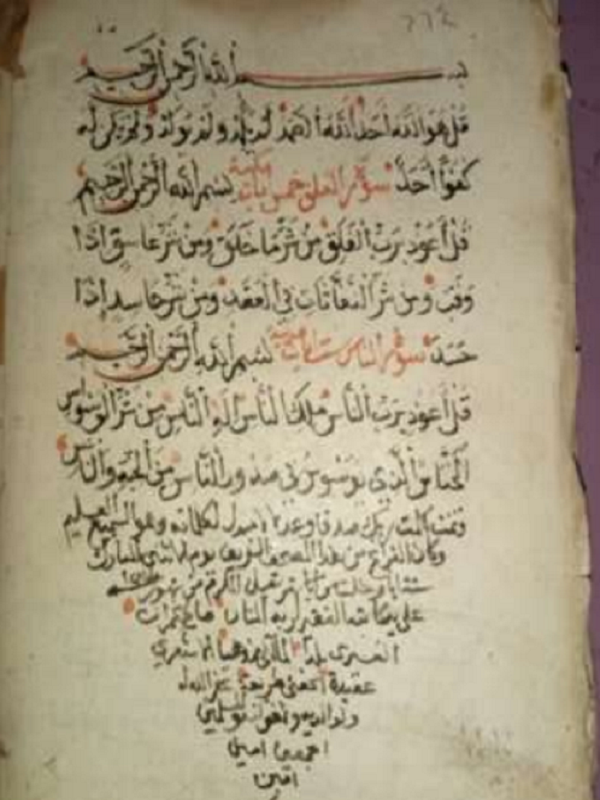 ٢٦٤
بسم الله الرحمن الرحيم
قل هو الله أحد الله الصمد لم يلد ولم يولد ولم يكن له
كفوا أحد سورة الفلق خمس آيات مكية بسم الله الرحمن الرحيم
قل أعوذ برب الفلق من شر ما خلق ومن شر غاسق إذا
وقب ومن شر النفاثات في العقد ومن شر حاسد إذا
حسد سورة الناس ست آيات بسم الله الرحمن الرحيم
قل أعوذ برب الناس ملك الناس إله الناس من شر الوسواس
الخناس الذي يوسوس في صدور الناس من الجنة والناس
وتمت كلمت ربك صدقا وعدلا لا مبدل لكلماته وهو السميع العليم
وكان الفراغ من هذا المصحف الشريف يوم المبارك
من شهور
على يد كاتبه الفقير إليه
بلدا المالكي مذهبا الأشعري
عقيدة غفر الله له
ولوالديه ولاخوانه المسلمين
أجمعين امين
امين